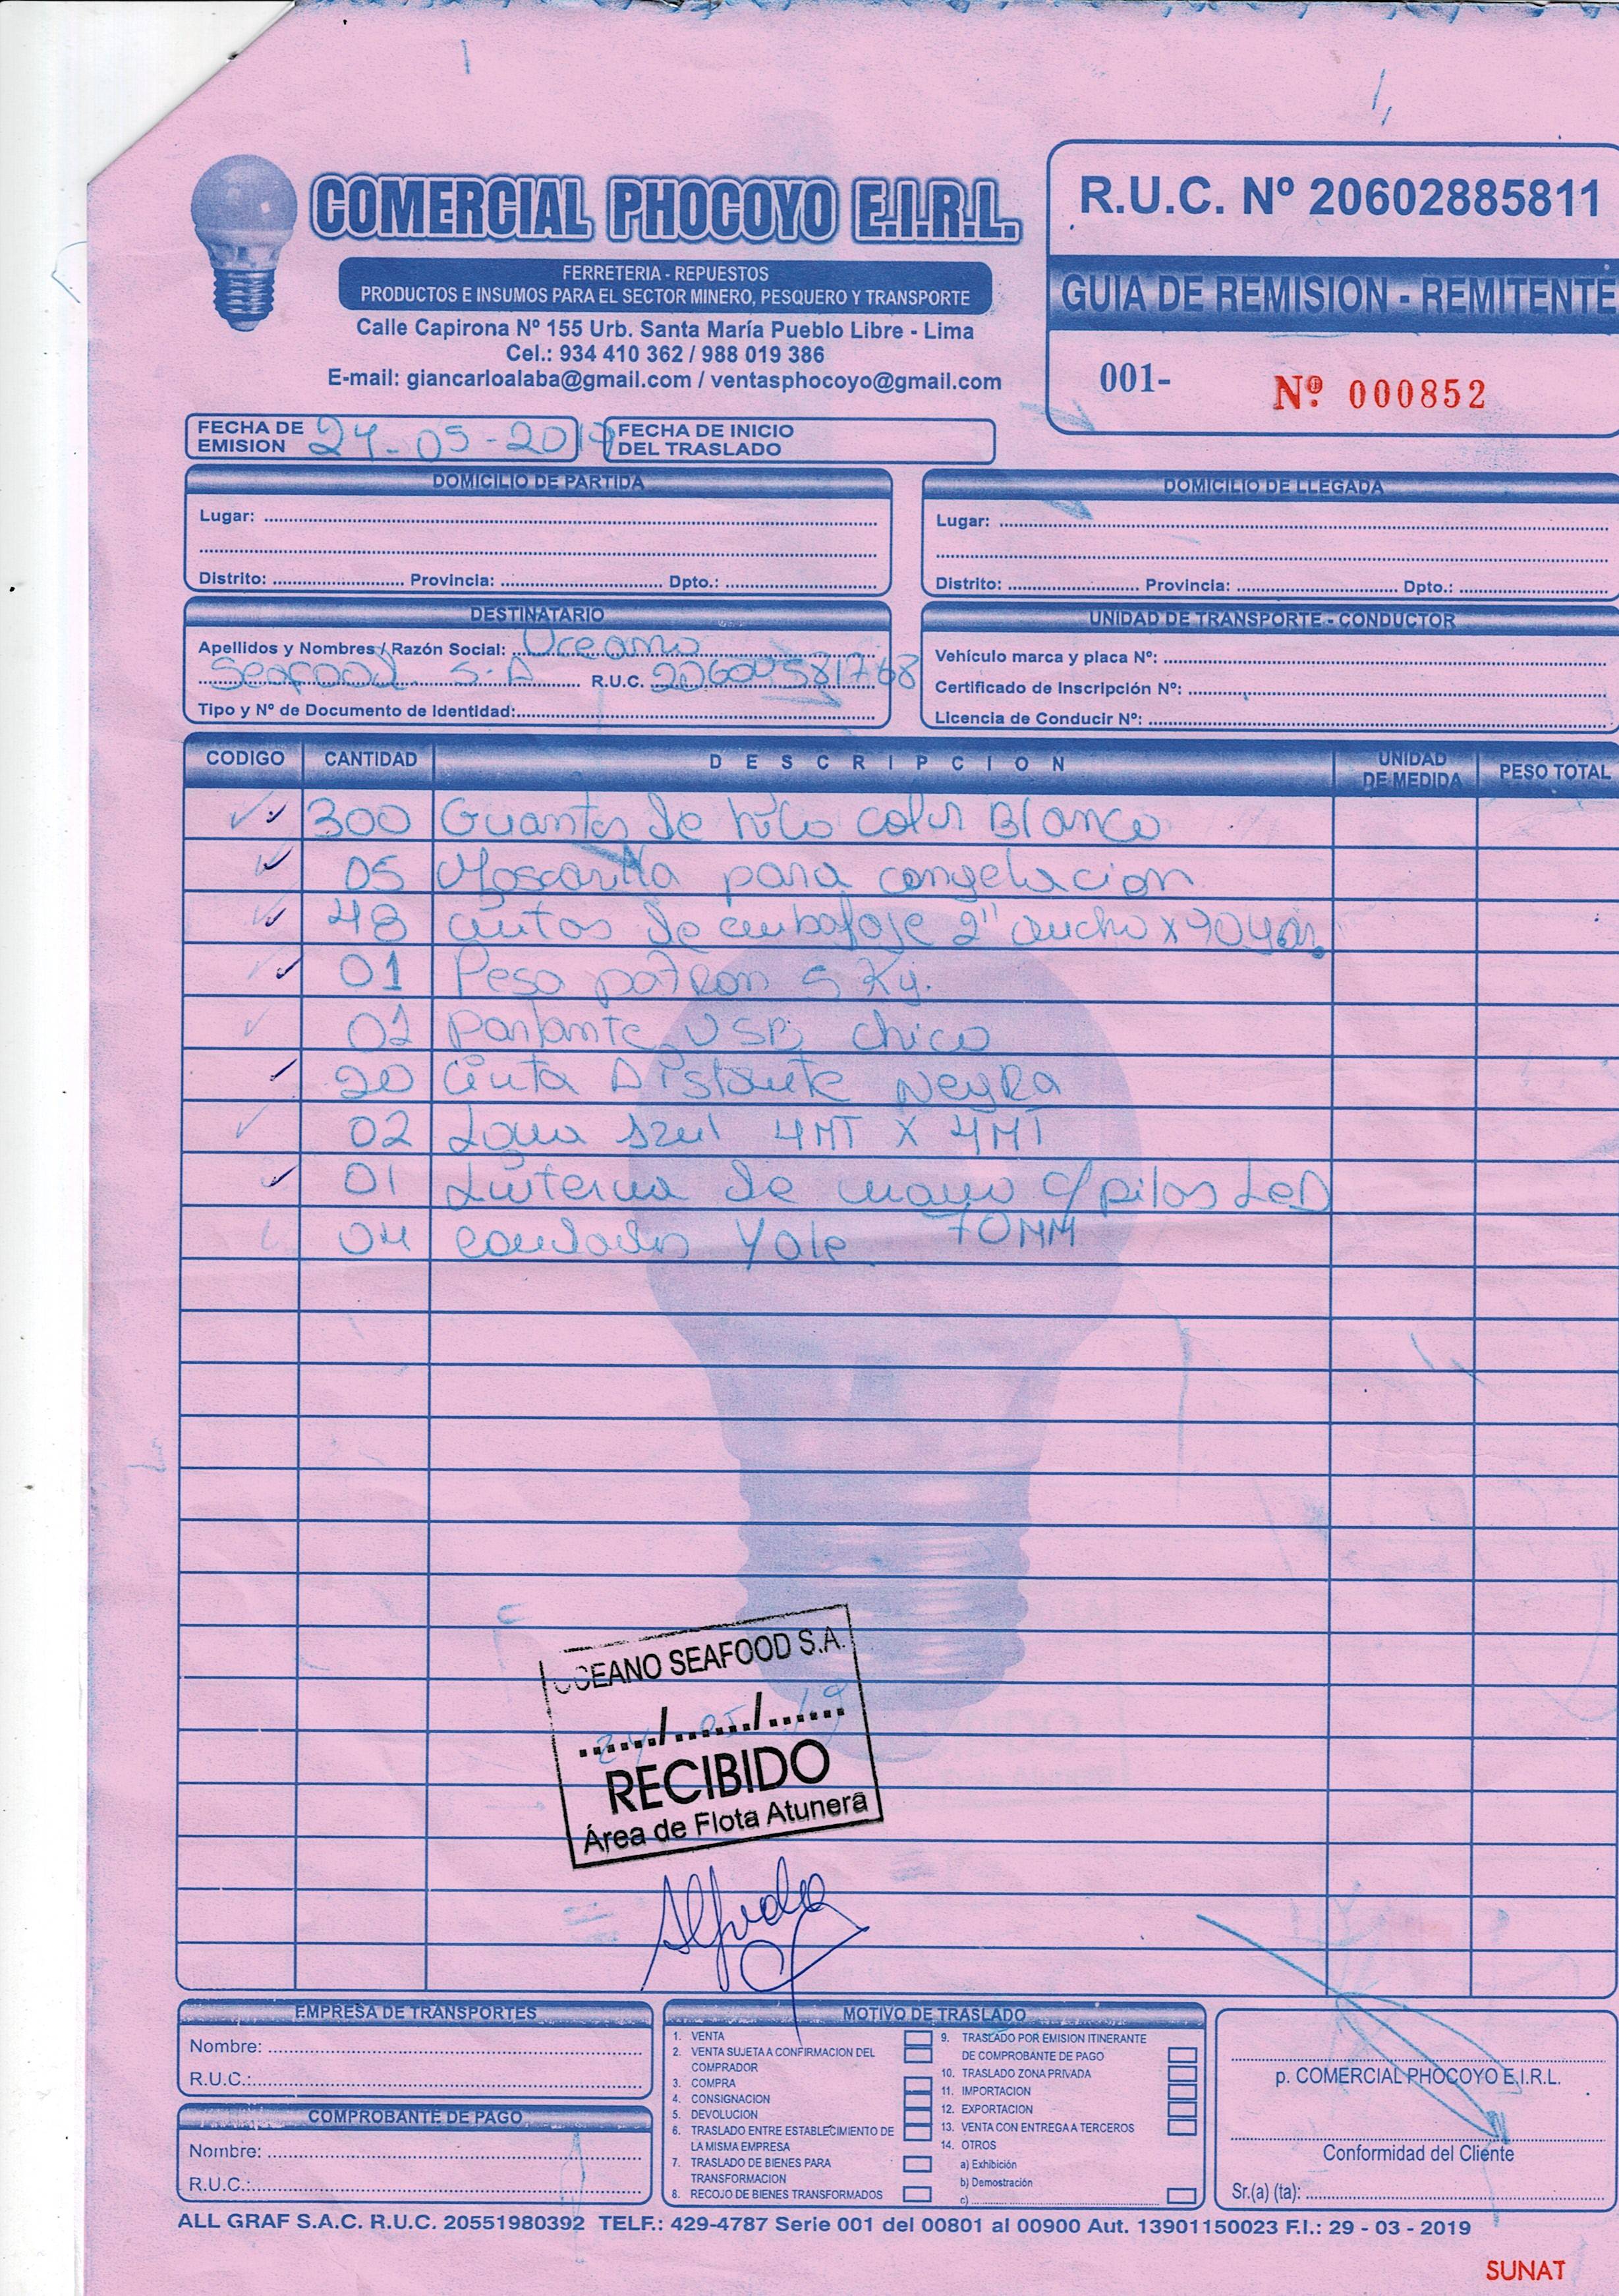 COMERCIAL PHOCOYO E.I.R.L.
FERRETERIA - REPUESTOS
PRODUCTOS E INSUMOS PARA EL SECTOR MINERO, PESQUERO Y TRANSPORTE
Calle Capirona Nº 155 Urb. Santa María Pueblo Libre - Lima
Cel.: 934 410 362 / 988 019 386
E-mail: giancarloalaba@gmail.com / ventasphocoyo@gmail.com
R.U.C. Nº 20602885811
GUIA DE REMISION - REMITENTE
001- Nº 000852
FECHA DE EMISION 24-05-2019
FECHA DE INICIO DEL TRASLADO
DOMICILIO DE PARTIDA
Lugar:
Distrito: Provincia: Dpto.:
DOMICILIO DE LLEGADA
Lugar:
Distrito: Provincia: Dpto.:
DESTINATARIO
Apellidos y Nombres / Razón Social: Oceano
Seafood S.A R.U.C. 20600581768
Tipo y Nº de Documento de Identidad:
UNIDAD DE TRANSPORTE - CONDUCTOR
Vehículo marca y placa Nº:
Certificado de Inscripción Nº:
Licencia de Conducir Nº:
CODIGO CANTIDAD DESCRIPCION UNIDAD DE MEDIDA PESO TOTAL
300 Guantes de hilo color Blanco
05 Mascarilla para congelacion
48 cintas de embalaje 2" ancho x 90 yar.
01 Peso patron 5 Kg.
01 Parlante USB chico
20 Cinta Aislante Negra
02 Lona Azul 4MT X 4MT
01 Linterna de mano c/pilas LeD
04 candados Yale 70MM
OCEANO SEAFOOD S.A.
24/05/19
RECIBIDO
Área de Flota Atunera
EMPRESA DE TRANSPORTES
Nombre:
R.U.C.:
COMPROBANTE DE PAGO
Nombre:
R.U.C.:
MOTIVO DE TRASLADO
1. VENTA
2. VENTA SUJETA A CONFIRMACION DEL
COMPRADOR
3. COMPRA
4. CONSIGNACION
5. DEVOLUCION
6. TRASLADO ENTRE ESTABLECIMIENTO DE
LA MISMA EMPRESA
7. TRASLADO DE BIENES PARA
TRANSFORMACION
8. RECOJO DE BIENES TRANSFORMADOS
9. TRASLADO POR EMISION ITINERANTE
DE COMPROBANTE DE PAGO
10. TRASLADO ZONA PRIVADA
11. IMPORTACION
12. EXPORTACION
13. VENTA CON ENTREGA A TERCEROS
14. OTROS
a) Exhibición
b) Demostración
c)
p. COMERCIAL PHOCOYO E.I.R.L.
Conformidad del Cliente
Sr.(a) (ta):
ALL GRAF S.A.C. R.U.C. 20551980392 TELF.: 429-4787 Serie 001 del 00801 al 00900 Aut. 13901150023 F.I.: 29 - 03 - 2019
SUNAT